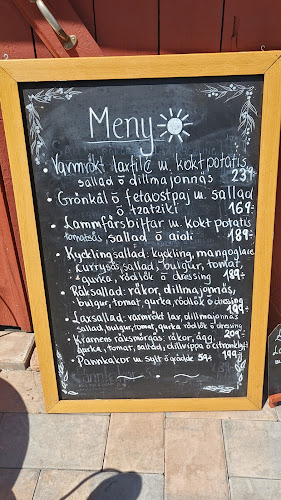 Meny
• Varmrökt laxfilé m. kokt potatis
sallad ö dillmajonnäs 239-
• Grönkål ö fetaostpaj m. sallad
ö tzatziki 169-
• Lammfärsbiffar m. kokt potatis
tomatsås sallad ö aioli 189-
• Kycklingsallad: kyckling, mangoglace
currysås, sallad, bulgur, tomat,
gurka, rödlök ö dressing 189-
• Räksallad: räkor, dillmajonnäs,
bulgur, tomat, gurka, rödlök ö dressing
199-
• Laxsallad: varmrökt lax, dillmajonnäs
sallad, bulgur, tomat, gurka, rödlök ö dressing
209-
• Krannens räksmörgås: räkor, ägg,
gurka, tomat, sallad, dillvippa ö citronklyft
199-
• Pannkakor m sylt ö grädde 59-